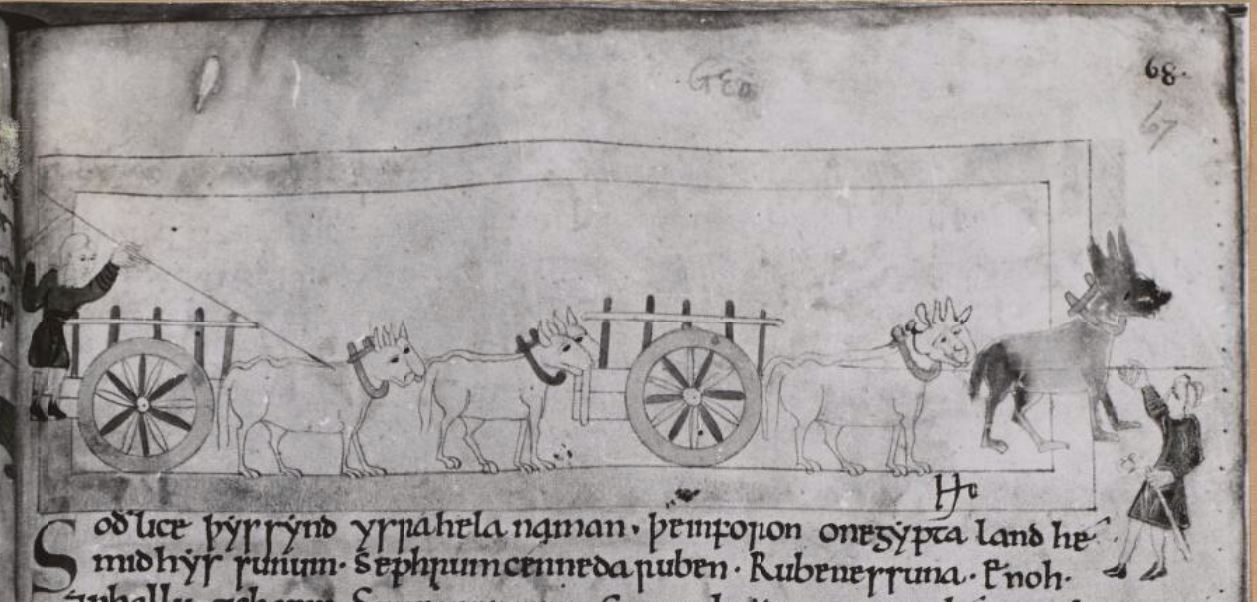 GEN
68.
67
Soðlice þys synd ysrahela naman · þe inforon on egypta land he
mid hys sunum · Se frumcenneda ruben · Rubenes suna · Enoh ·